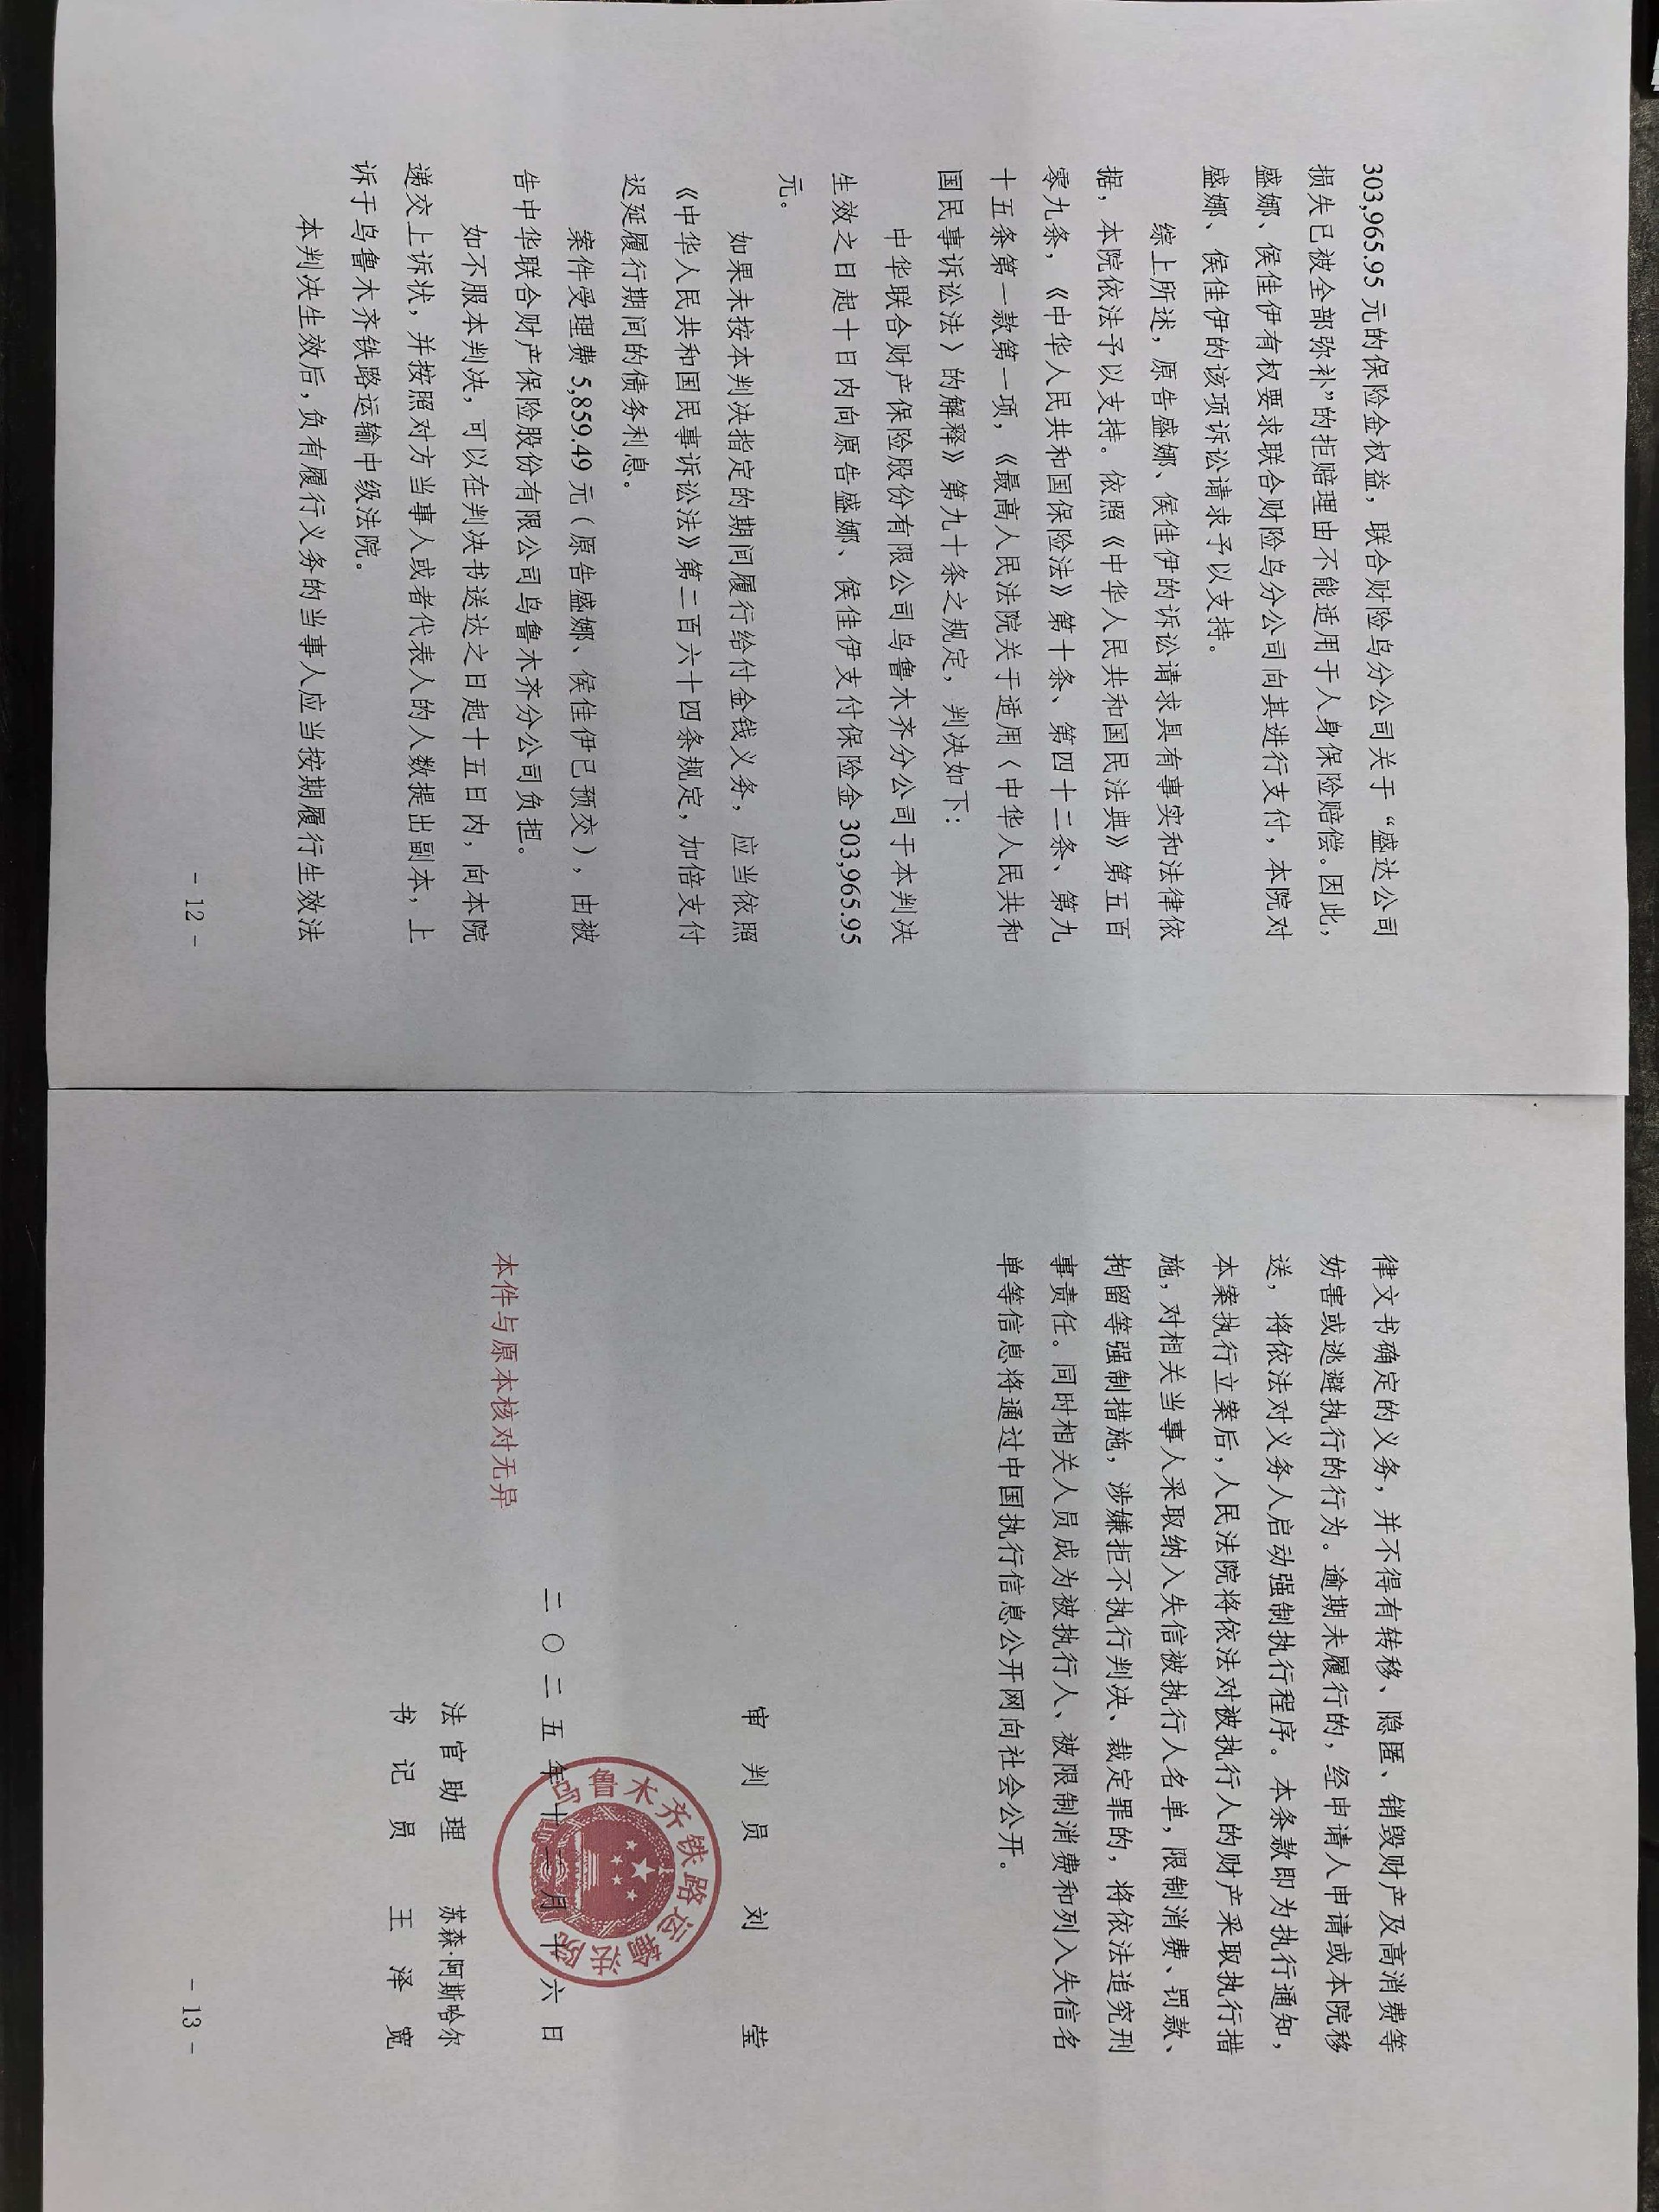 303,965.95 元的保险金权益，联合财险乌分公司关于“盛达公司
损失已被全部弥补”的拒赔理由不能适用于人身保险赔偿。因此，
盛娜、侯佳伊有权要求联合财险乌分公司向其进行支付，本院对
盛娜、侯佳伊的该项诉讼请求予以支持。
综上所述，原告盛娜、侯佳伊的诉讼请求具有事实和法律依
据，本院依法予以支持。依照《中华人民共和国民法典》第五百
零九条，《中华人民共和国保险法》第十条、第四十二条、第九
十五条第一款第一项，《最高人民法院关于适用〈中华人民共和
国民事诉讼法〉的解释》第九十条之规定，判决如下：
中华联合财产保险股份有限公司乌鲁木齐分公司于本判决
生效之日起十日内向原告盛娜、侯佳伊支付保险金 303,965.95
元。
如果未按本判决指定的期间履行给付金钱义务，应当依照
《中华人民共和国民事诉讼法》第二百六十四条规定，加倍支付
迟延履行期间的债务利息。
案件受理费 5,859.49 元（原告盛娜、侯佳伊已预交），由被
告中华联合财产保险股份有限公司乌鲁木齐分公司负担。
如不服本判决，可以在判决书送达之日起十五日内，向本院
递交上诉状，并按照对方当事人或者代表人的人数提出副本，上
诉于乌鲁木齐铁路运输中级法院。
本判决生效后，负有履行义务的当事人应当按期履行生效法
- 12 -
律文书确定的义务，并不得有转移、隐匿、销毁财产及高消费等
妨害或逃避执行的行为。逾期未履行的，经申请人申请或本院移
送，将依法对义务人启动强制执行程序。本条款即为执行通知，
本案执行立案后，人民法院将依法对被执行人的财产采取执行措
施，对相关当事人采取纳入失信被执行人名单，限制消费、罚款、
拘留等强制措施，涉嫌拒不执行判决、裁定罪的，将依法追究刑
事责任。同时相关人员成为被执行人、被限制消费和列入失信名
单等信息将通过中国执行信息公开网向社会公开。
审判员 刘莹
二〇二五年十二月十六日
乌鲁木齐铁路运输法院
本件与原本核对无异
法官助理 苏森·阿斯哈尔
书记员 王泽宽
- 13 -